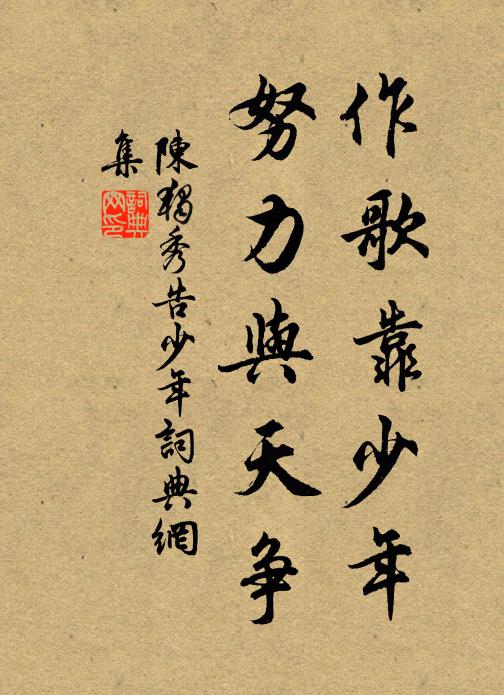 作歌靠少年
努力與天争
陳獨秀告少年詞典網
集
詞典
网印